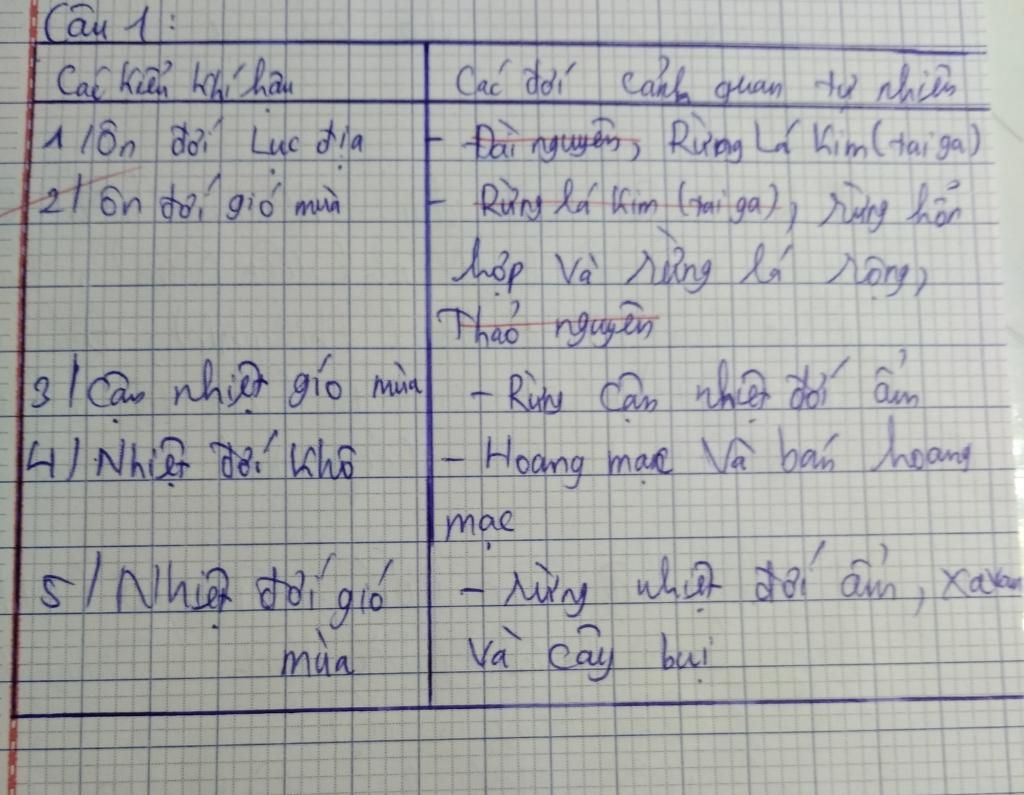 Câu 1:
Các kiểu khí hậu
Các đới cảnh quan tự nhiên
1/ Ôn đới lục địa
- Đài nguyên, Rừng lá kim (tai ga)
2/ Ôn đới gió mùa
- Rừng lá kim (tai ga), rừng hỗn
hợp và rừng lá rộng,
Thảo nguyên
3/ Cận nhiệt gió mùa
- Rừng cận nhiệt đới ẩm
4/ Nhiệt đới khô
- Hoang mạc và bán hoang
mạc
5/ Nhiệt đới gió
mùa
- rừng nhiệt đới ẩm, xavan
và cây bụi